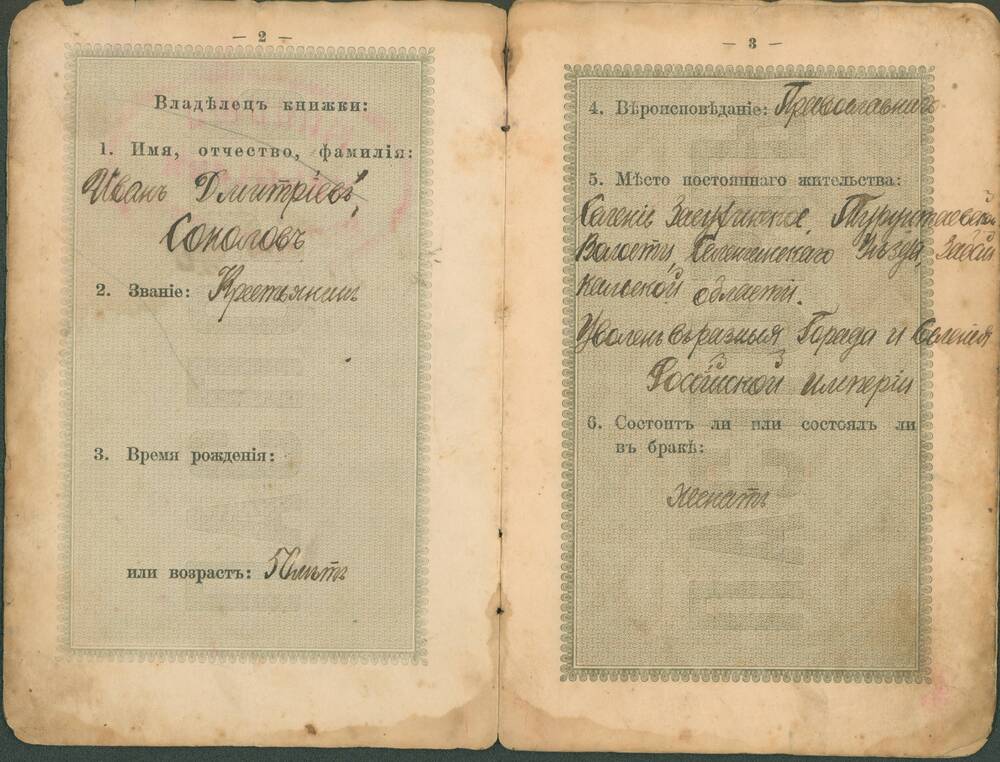 — 2 —
Владѣлецъ книжки:
1. Имя, отчество, фамилія:
Иванъ Дмитріевъ
Соколовъ
2. Званіе: Крестьянинъ
3. Время рожденія:
или возрастъ: 56 лѣтъ
— 3 —
4. Вѣроисповѣданіе: Православнаго
5. Мѣсто постояннаго жительства:
Селеніе
Волости, Селенгинскаго Уѣзда, Забай
кальской области.
Уволенъ въ разныя Города и Селенія
Россійской имперіи
6. Состоитъ ли или состоялъ ли
въ бракѣ:
женатъ
ПАСПОРТ